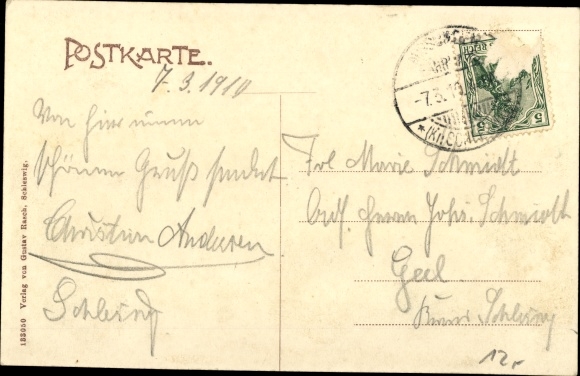 POSTKARTE.
7. 3. 1910
Von hier einen
schönen Gruß sendet
Christian Andresen
Schleswig
Frl Marie Schmidt
Adr. Herrn Johs. Schmidt
Geel
Schleswig
-7.3.10
REICH
5 5
133050 Verlag von Gustav Rasch, Schleswig.
12,-